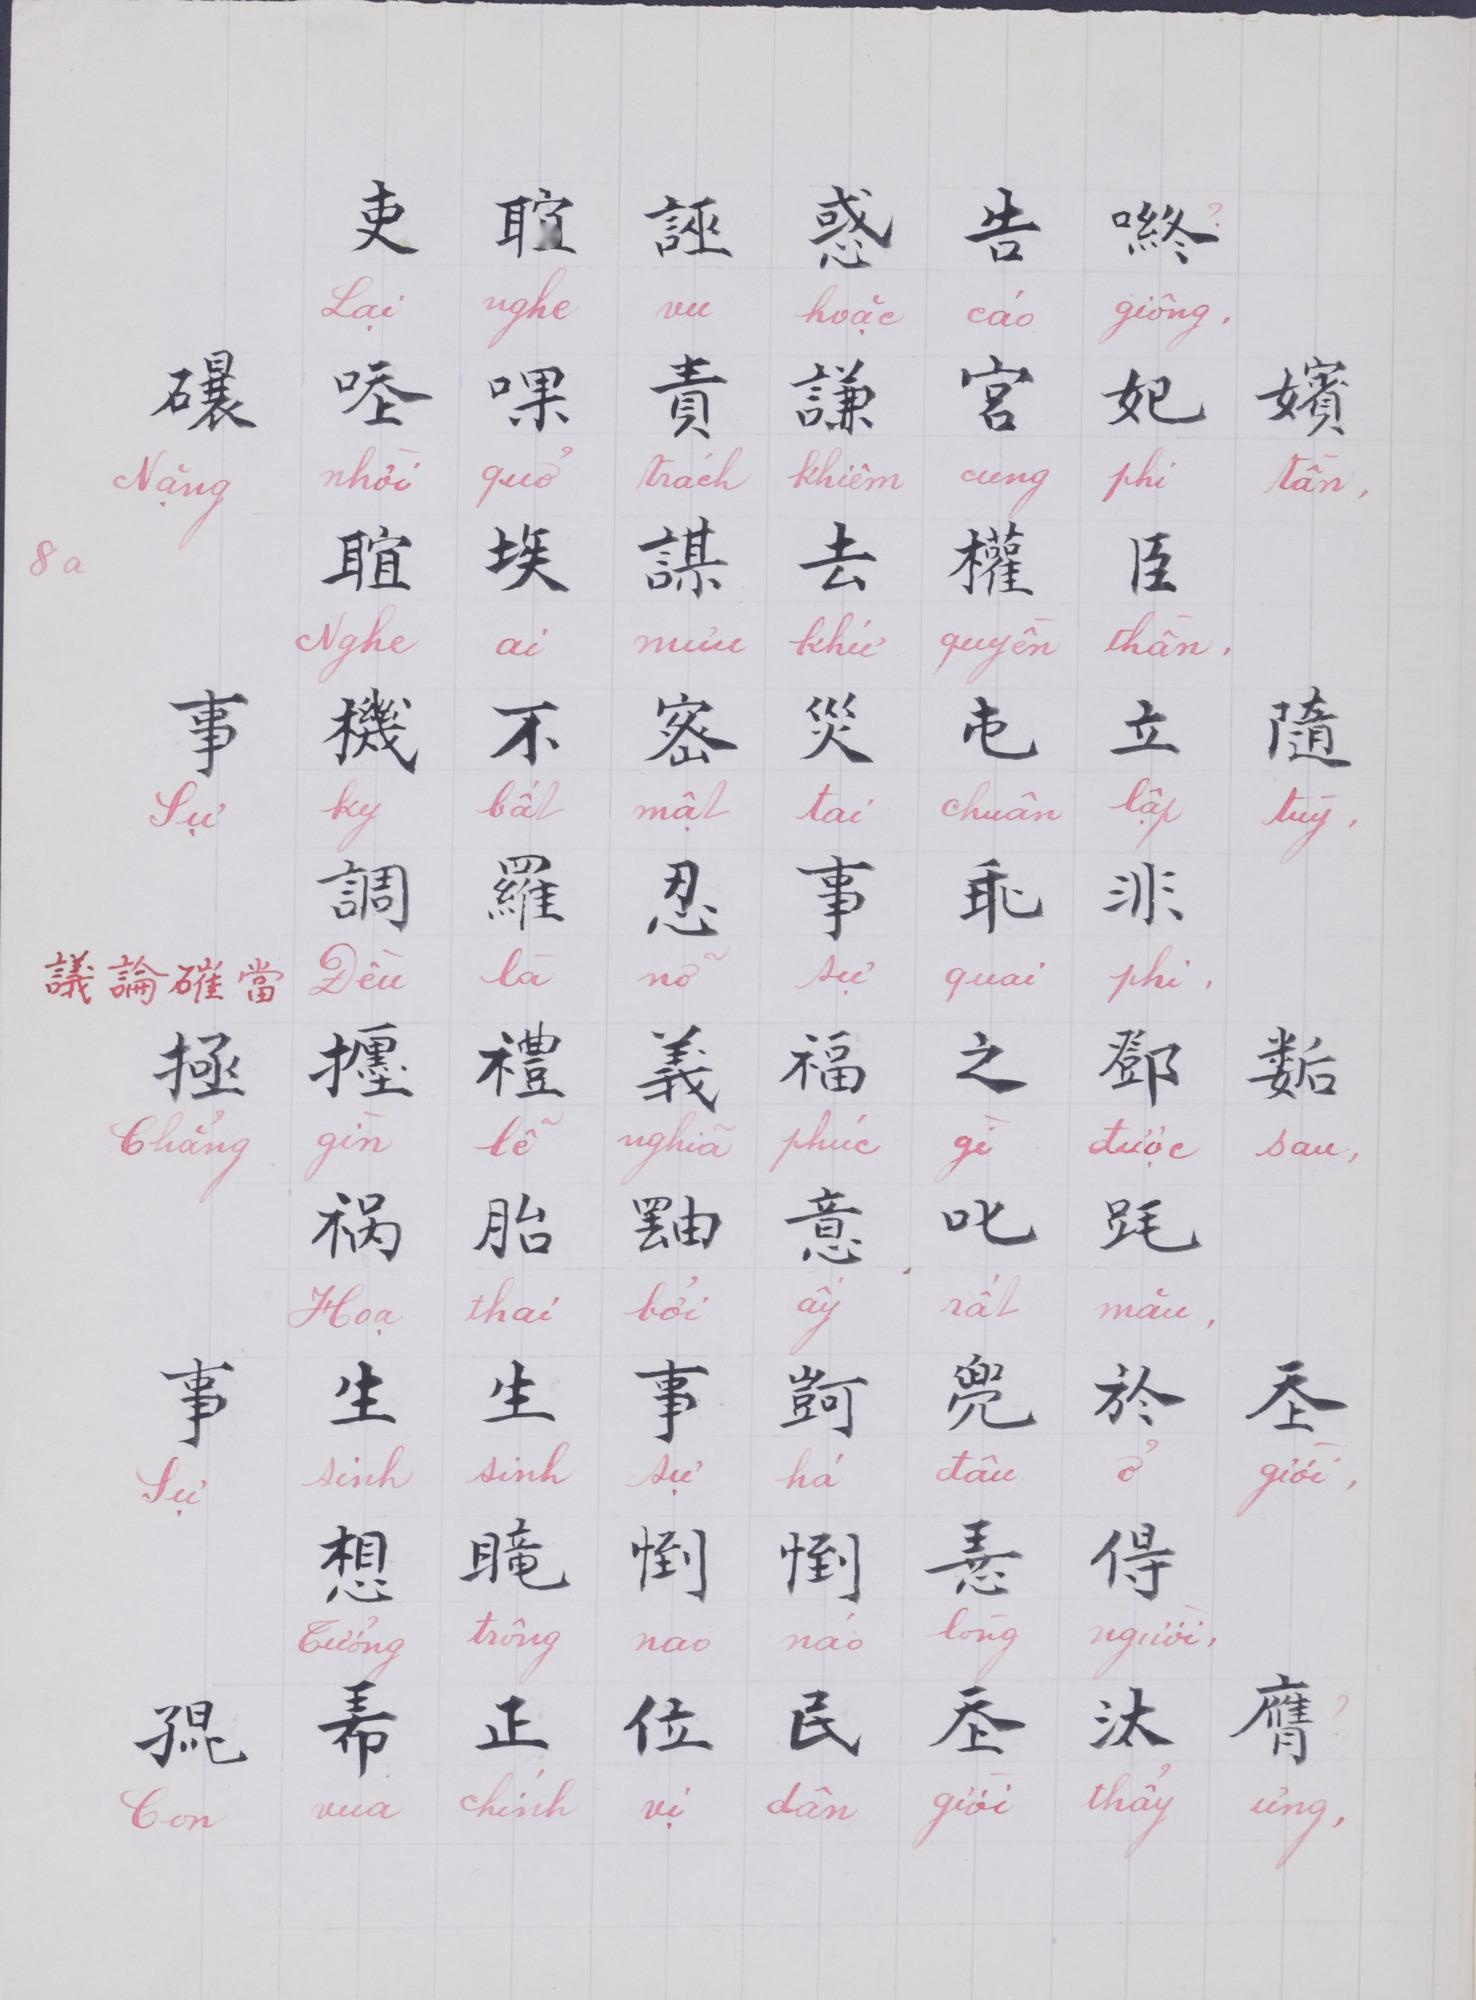 吏 𦖻 誣 惑 告 ?
Lại nghe vu hoặc cáo giông,
𥗾 𠱤 㗖 責 謙 宮 妃 嬪
Nặng nhời quở trách khiêm cung phi tần,
8a
𦖻 埃 謀 去 權 臣
Nghe ai mưu khứ quyền thần,
事 機 不 密 災 屯 立 隨
Sự ky bất mật tai chuân lập tùy,
調 羅 忍 事 乖 非
議論確當
Đều là nỡ sự quai phi,
拯 㩫 禮 義 福 之 鄧 𡢐
Chẳng gìn lễ nghĩa phúc gì được sau,
禍 胎 𪽝 意 叱 𣭻
Hoạ thai bởi ấy rất mầu,
事 生 生 事 𣉹 兜 於 𡗶
Sự sinh sinh sự há đâu ở giời,
想 𥊚 㤙 㤙 𢚸 㝵
Tưởng trông nao náo lòng người,
𡥵 𤤰 正 位 民 𡗶 汰 膺 ?
Con vua chính vị dân giời thẩy ưng,